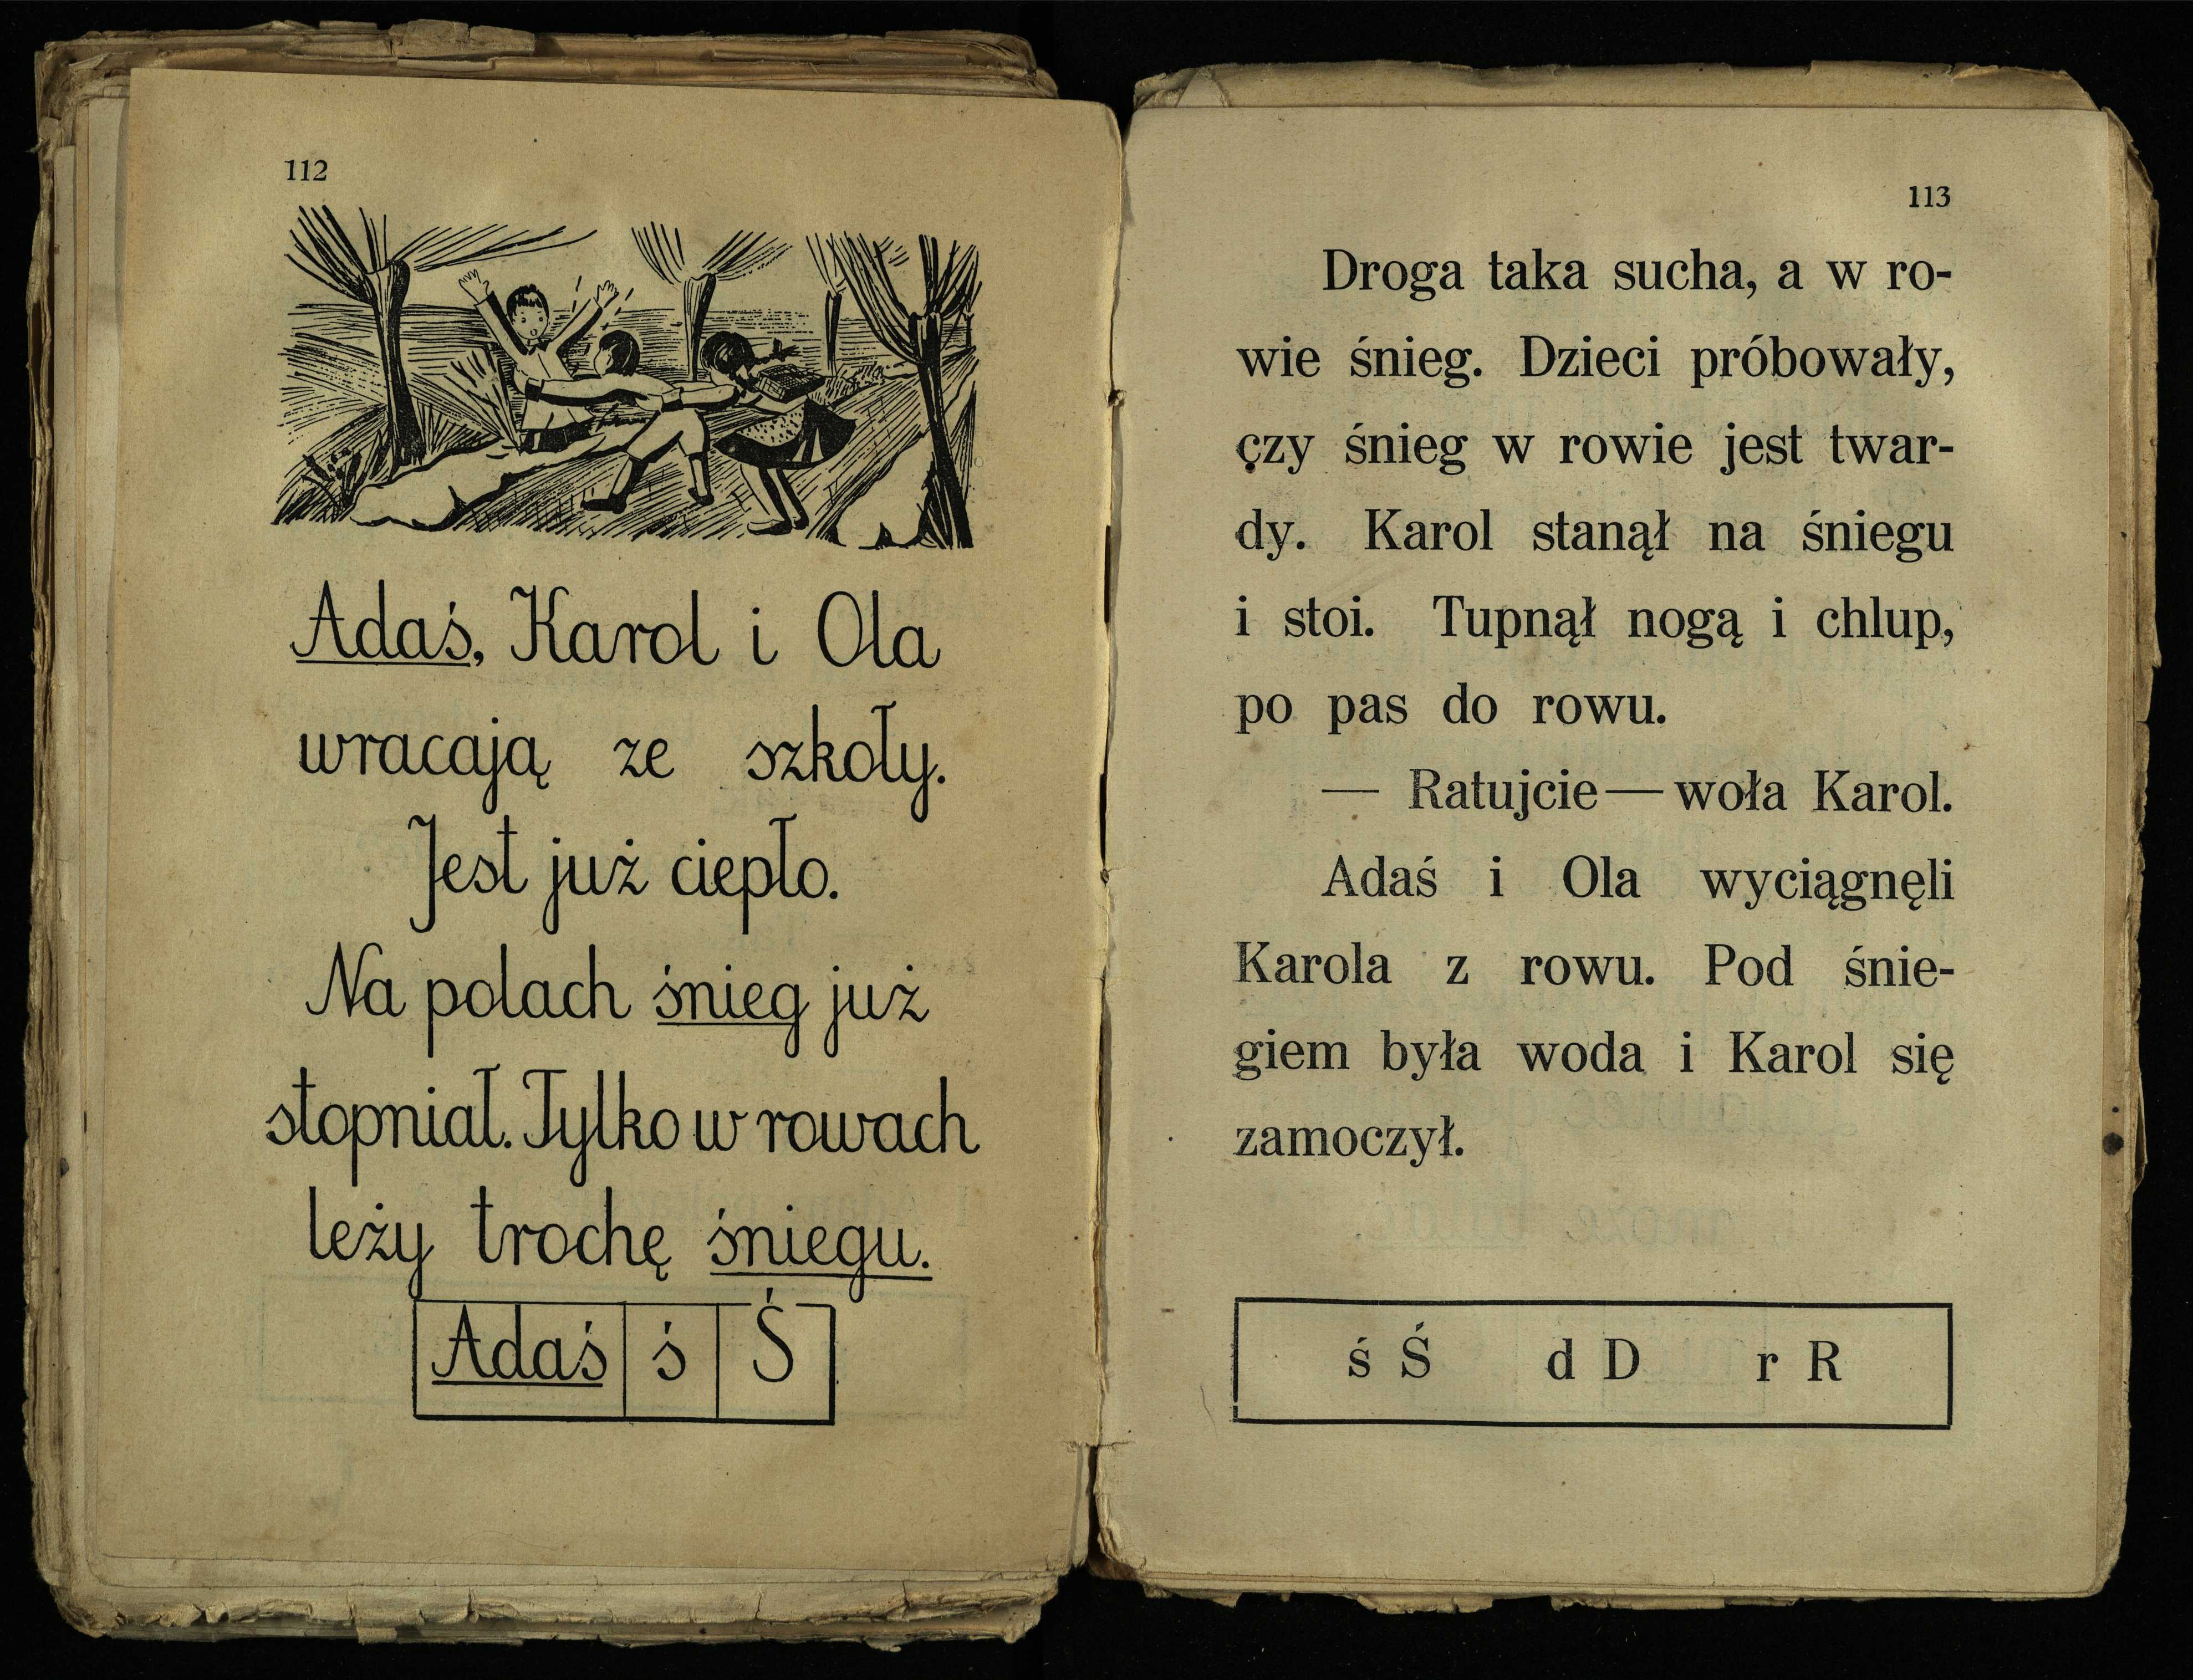 112
Adaś, Karol i Ola
wracają ze szkoły.
Jest już ciepło.
Na polach śnieg już
stopniał. Tylko w rowach
leży trochę śniegu.
Adaś ś Ś
113
Droga taka sucha, a w ro-
wie śnieg. Dzieci próbowały,
czy śnieg w rowie jest twar-
dy. Karol stanął na śniegu
i stoi. Tupnął nogą i chlup,
po pas do rowu.
— Ratujcie — woła Karol.
Adaś i Ola wyciągnęli
Karola z rowu. Pod śnie-
giem była woda i Karol się
zamoczył.
ś Ś d D r R